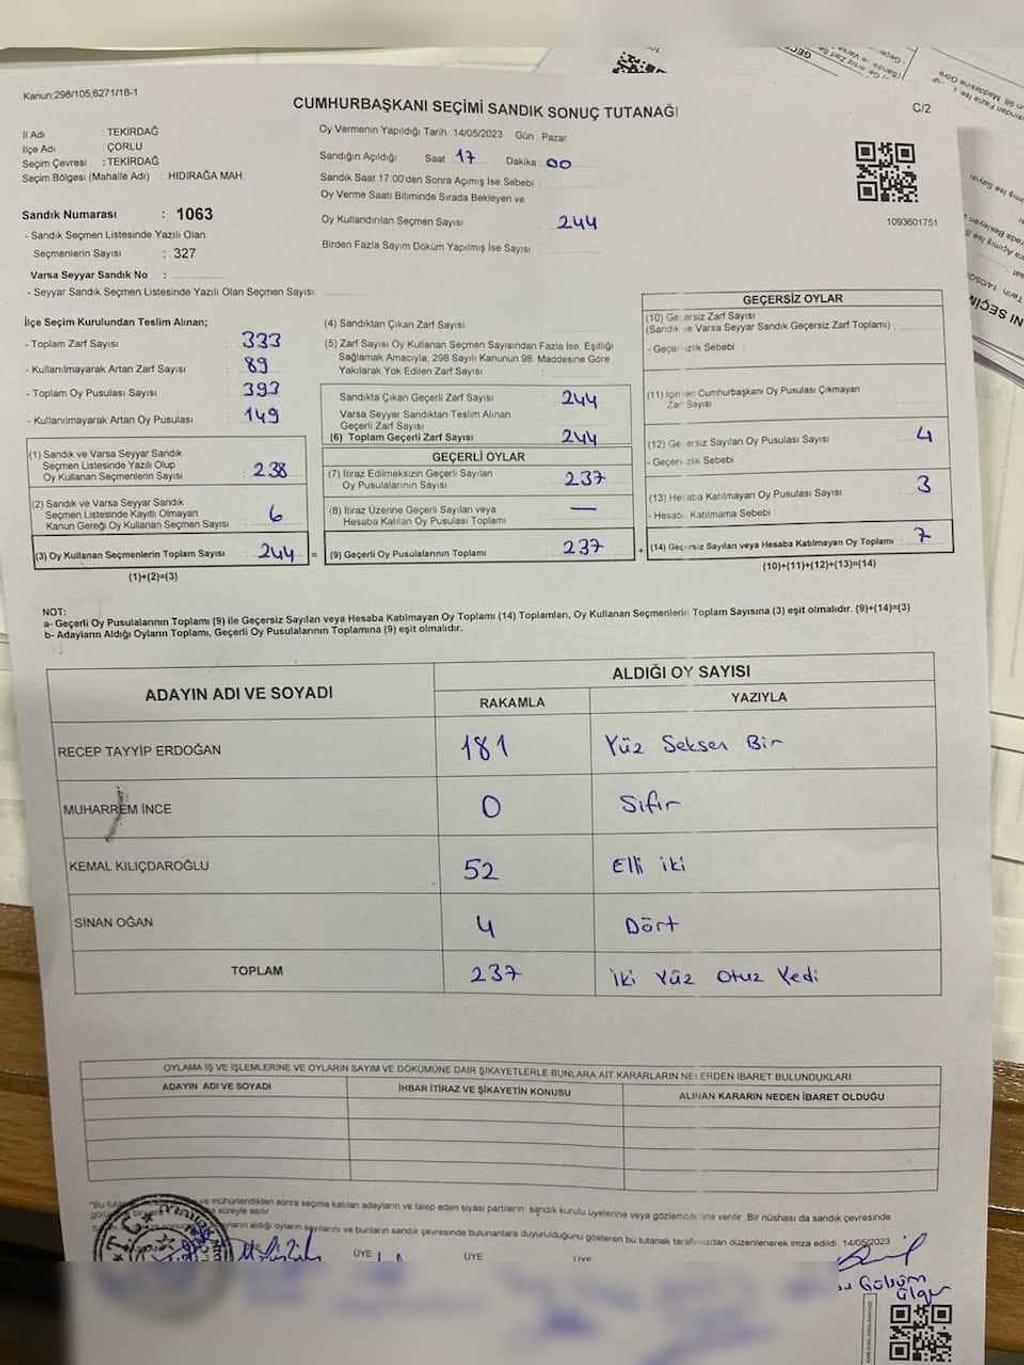 Kanun:298/105,6271/18-1
CUMHURBAŞKANI SEÇİMİ SANDIK SONUÇ TUTANAĞI
C/2
İl Adı : TEKİRDAĞ
İlçe Adı : ÇORLU
Seçim Çevresi : TEKİRDAĞ
Seçim Bölgesi (Mahalle Adı) : HIDIRAĞA MAH.
Sandık Numarası : 1063
- Sandık Seçmen Listesinde Yazılı Olan
Seçmenlerin Sayısı : 327
Varsa Seyyar Sandık No :
- Seyyar Sandık Seçmen Listesinde Yazılı Olan Seçmen Sayısı:
Oy Vermenin Yapıldığı Tarih: 14/05/2023 Gün: Pazar
Sandığın Açıldığı Saat 17 Dakika 00
Sandık Saat 17:00'den Sonra Açımış İse Sebebi
Oy Verme Saati Bitiminde Sırada Bekleyen ve
Oy Kullandırılan Seçmen Sayısı 244
Birden Fazla Sayım Döküm Yapılmış İse Sayısı
1093601751
İlçe Seçim Kurulundan Teslim Alınan;
- Toplam Zarf Sayısı 333
- Kullanılmayarak Artan Zarf Sayısı 89
- Toplam Oy Pusulası Sayısı 393
- Kullanılmayarak Artan Oy Pusulası 149
(1) Sandık ve Varsa Seyyar Sandık
Seçmen Listesinde Yazılı Olup
Oy Kullanan Seçmenlerin Sayısı 238
(2) Sandık ve Varsa Seyyar Sandık
Seçmen Listesinde Kayıtlı Olmayan
Kanun Gereği Oy Kullanan Seçmen Sayısı 6
(3) Oy Kullanan Seçmenlerin Toplam Sayısı 244 =
(1)+(2)=(3)
(4) Sandıktan Çıkan Zarf Sayısı
(5) Zarf Sayısı Oy Kullanan Seçmen Sayısından Fazla İse, Eşitliği
Sağlamak Amacıyla, 298 Sayılı Kanunun 98. Maddesine Göre
Yakılarak Yok Edilen Zarf Sayısı
Sandıkta Çıkan Geçerli Zarf Sayısı 244
Varsa Seyyar Sandıktan Teslim Alınan
Geçerli Zarf Sayısı
(6) Toplam Geçerli Zarf Sayısı 244
GEÇERLİ OYLAR
(7) İtiraz Edilmeksizin Geçerli Sayılan
Oy Pusulalarının Sayısı 237
(8) İtiraz Üzerine Geçerli Sayılan veya
Hesaba Katılan Oy Pusulası Toplamı —
(9) Geçerli Oy Pusulalarının Toplamı 237 +
GEÇERSİZ OYLAR
(10) Zarf Sayısı
(Sandık ve Varsa Seyyar Sandık Geçersiz Zarf Toplamı)
- Sebebi :
(11) Cumhurbaşkanı Oy Pusulası Çıkmayan
Zarf Sayısı
(12) Sayılan Oy Pusulası Sayısı 4
- Sebebi
(13) Hesaba Katılmayan Oy Pusulası Sayısı 3
- Katılmama Sebebi
(14) Sayılan veya Hesaba Katılmayan Oy Toplamı : 7
(10)+(11)+(12)+(13)=(14)
NOT:
a- Geçerli Oy Pusulalarının Toplamı (9) ile Geçersiz Sayılan veya Hesaba Katılmayan Oy Toplamı (14) Toplamları, Oy Kullanan Seçmenlerin Toplam Sayısına (3) eşit olmalıdır. (9)+(14)=(3)
b- Adayların Aldığı Oyların Toplamı, Geçerli Oy Pusulalarının Toplamına (9) eşit olmalıdır.
ADAYIN ADI VE SOYADI
ALDIĞI OY SAYISI
RAKAMLA YAZIYLA
RECEP TAYYİP ERDOĞAN 181 Yüz Seksen Bir
MUHARREM İNCE 0 Sıfır
KEMAL KILIÇDAROĞLU 52 Elli iki
SİNAN OĞAN 4 Dört
TOPLAM 237 İki Yüz Otuz Yedi
OYLAMA İŞ VE İŞLEMLERİNE VE OYLARIN SAYIM VE DÖKÜMÜNE DAİR ŞİKAYETLERLE BUNLARA AİT KARARLARIN İBARET BULUNDUKLARI
ADAYIN ADI VE SOYADI İHBAR İTİRAZ VE ŞİKAYETİN KONUSU ALINAN KARARIN NEDEN İBARET OLDUĞU
ve mühürlendikten sonra seçime katılan adayların ve talep eden siyasi partilerin sandık kurulu üyelerine veya verilir. Bir nüshası da sandık çevresinde
süreyle asılır.
aldığı oyların sayılarını ve bunların sandık çevresinde bulunanlara duyurulduğunu gösteren bu tutanak düzenlenerek imza edildi. 14/05/2023
ÜYE ÜYE
T.C.